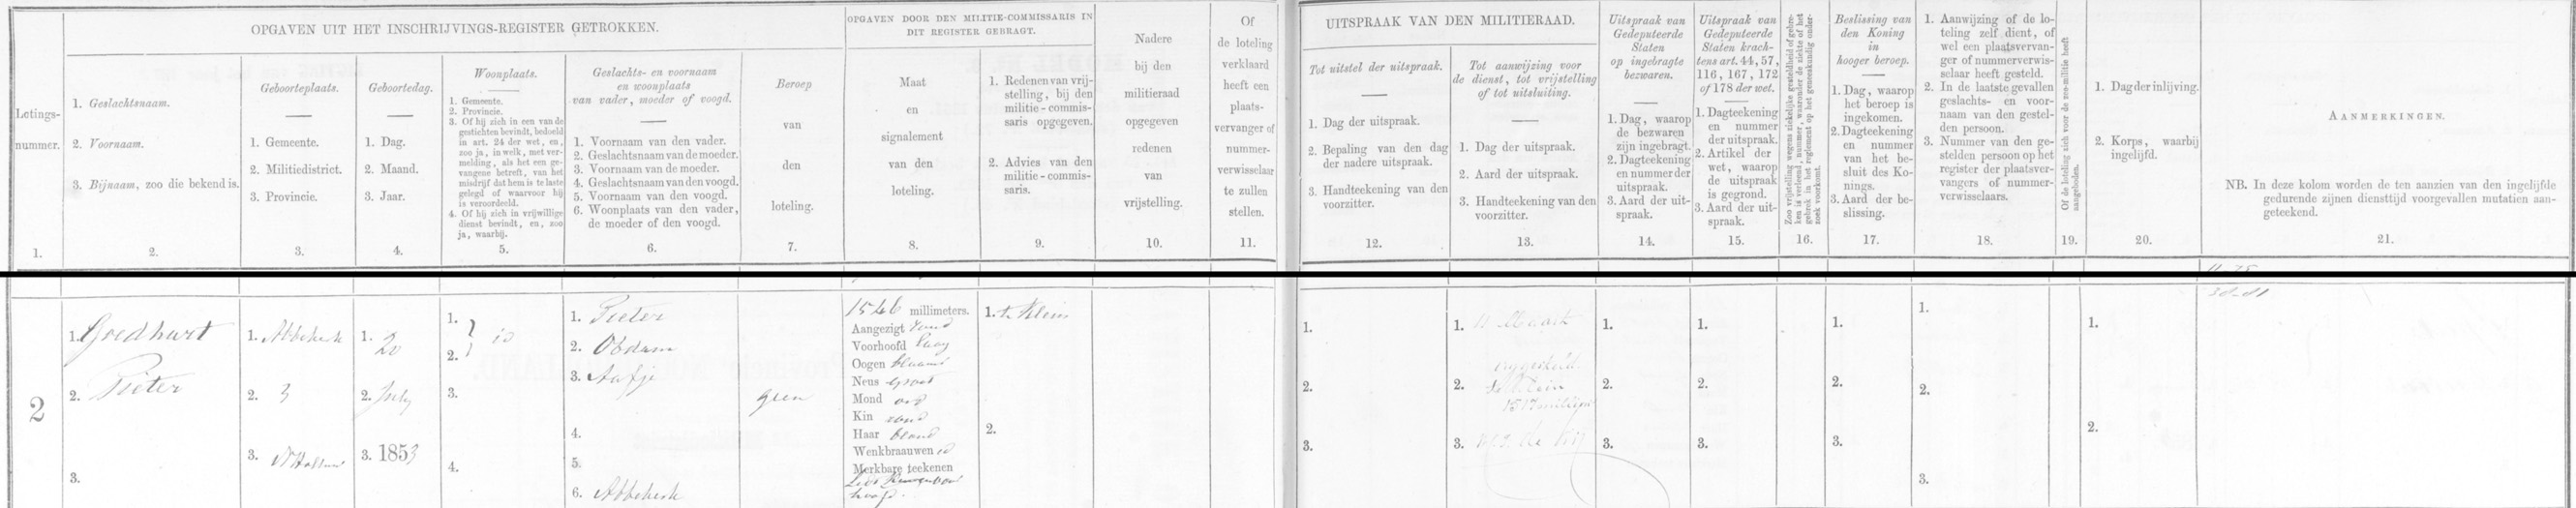 OPGAVEN UIT HET INSCHRIJVINGS-REGISTER GETROKKEN.
Lotings-
nummer.
1.
1. Geslachtsnaam.
2. Voornaam.
3. Bijnaam, zoo die bekend is.
2.
Geboorteplaats.
1. Gemeente.
2. Militiedistrict.
3. Provincie.
3.
Geboortedag.
1. Dag.
2. Maand.
3. Jaar.
4.
Woonplaats.
1. Gemeente.
2. Provincie.
3. Of hij zich in een van de
gestichten bevindt, bedoeld
in art. 24 der wet, en,
zoo ja, in welk, met ver-
melding, als het een ge-
vangene betreft, van het
misdrijf dat hem is te laste
gelegd of waarvoor hij
is veroordeeld.
4. Of hij zich in vrijwillige
dienst bevindt, en, zoo
ja, waarbij.
5.
Geslachts- en voornaam
en woonplaats
van vader, moeder of voogd.
1. Voornaam van den vader.
2. Geslachtsnaam van de moeder.
3. Voornaam van de moeder.
4. Geslachtsnaam van den voogd.
5. Voornaam van den voogd.
6. Woonplaats van den vader,
de moeder of den voogd.
6.
Beroep
van
den
loteling.
7.
OPGAVEN DOOR DEN MILITIE-COMMISSARIS IN
DIT REGISTER GEBRAGT.
Maat
en
signalement
van den
loteling.
8.
1. Redenen van vrij-
stelling, bij den
militie-commis-
saris opgegeven.
2. Advies van den
militie-commis-
saris.
9.
Nadere
bij den
militieraad
opgegeven
redenen
van
vrijstelling.
10.
Of
de loteling
verklaard
heeft een
plaats-
vervanger of
nummer-
verwisselaar
te zullen
stellen.
11.
UITSPRAAK VAN DEN MILITIERAAD.
Tot uitstel der uitspraak.
1. Dag der uitspraak.
2. Bepaling van den dag
der nadere uitspraak.
3. Handteekening van den
voorzitter.
12.
Tot aanwijzing voor
de dienst, tot vrijstelling
of tot uitsluiting.
1. Dag der uitspraak.
2. Aard der uitspraak.
3. Handteekening van den
voorzitter.
13.
Uitspraak van
Gedeputeerde
Staten
op ingebragte
bezwaren.
1. Dag, waarop
de bezwaren
zijn ingebragt.
2. Dagteekening
en nummer der
uitspraak.
3. Aard der uit-
spraak.
14.
Uitspraak van
Gedeputeerde
Staten krach-
tens art. 44, 57,
116, 167, 172
of 178 der wet.
1. Dagteekening
en nummer
der uitspraak.
2. Artikel der
wet, waarop
de uitspraak
is gegrond.
3. Aard der uit-
spraak.
15.
Zoo vrijstelling wegens ziekelijke gesteldheid of gebre-
ken is verleend, nummer, waaronder de ziekte of het
gebrek in het reglement op het geneeskundig onder-
zoek voorkomt.
16.
Beslissing van
den Koning
in
hooger beroep.
1. Dag, waarop
het beroep is
ingekomen.
2. Dagteekening
en nummer
van het be-
sluit des Ko-
nings.
3. Aard der be-
slissing.
17.
1. Aanwijzing of de lo-
teling zelf dient, of
wel een plaatsvervan-
ger of nummerverwis-
selaar heeft gesteld.
2. In de laatste gevallen
geslachts- en voor-
naam van den gestel-
den persoon.
3. Nummer van den ge-
stelden persoon op het
register der plaatsver-
vangers of nummer-
verwisselaars.
18.
Of de loteling zich voor de zee-militie heeft
aangeboden.
19.
1. Dag der inlijving.
2. Korps, waarbij
ingelijfd.
20.
AANMERKINGEN.
NB. In deze kolom worden de ten aanzien van den ingelijfde
gedurende zijnen diensttijd voorgevallen mutatien aan-
geteekend.
21.
2
1. Goedhart
2. Pieter
3.
1. Abbekerk
2. 3
3. N Holland
1. 20
2. July
3. 1853
1.
2. id
3.
4.
1. Pieter
2. Obdam
3. Aafje
4.
5.
6. Abbekerk
geen
1546 millimeters.
Aangezigt rond
Voorhoofd laag
Oogen blaauw
Neus groot
Mond ord
Kin rond
Haar blond
Wenkbraauwen id
Merkbare teekenen
hoofd.
1. te klein
2.
1.
2.
3.
1. 11 Maart
2. vrijgesteld
te klein
3.
1.
2.
3.
1.
2.
3.
1.
2.
3.
1.
2.
3.
1.
2.